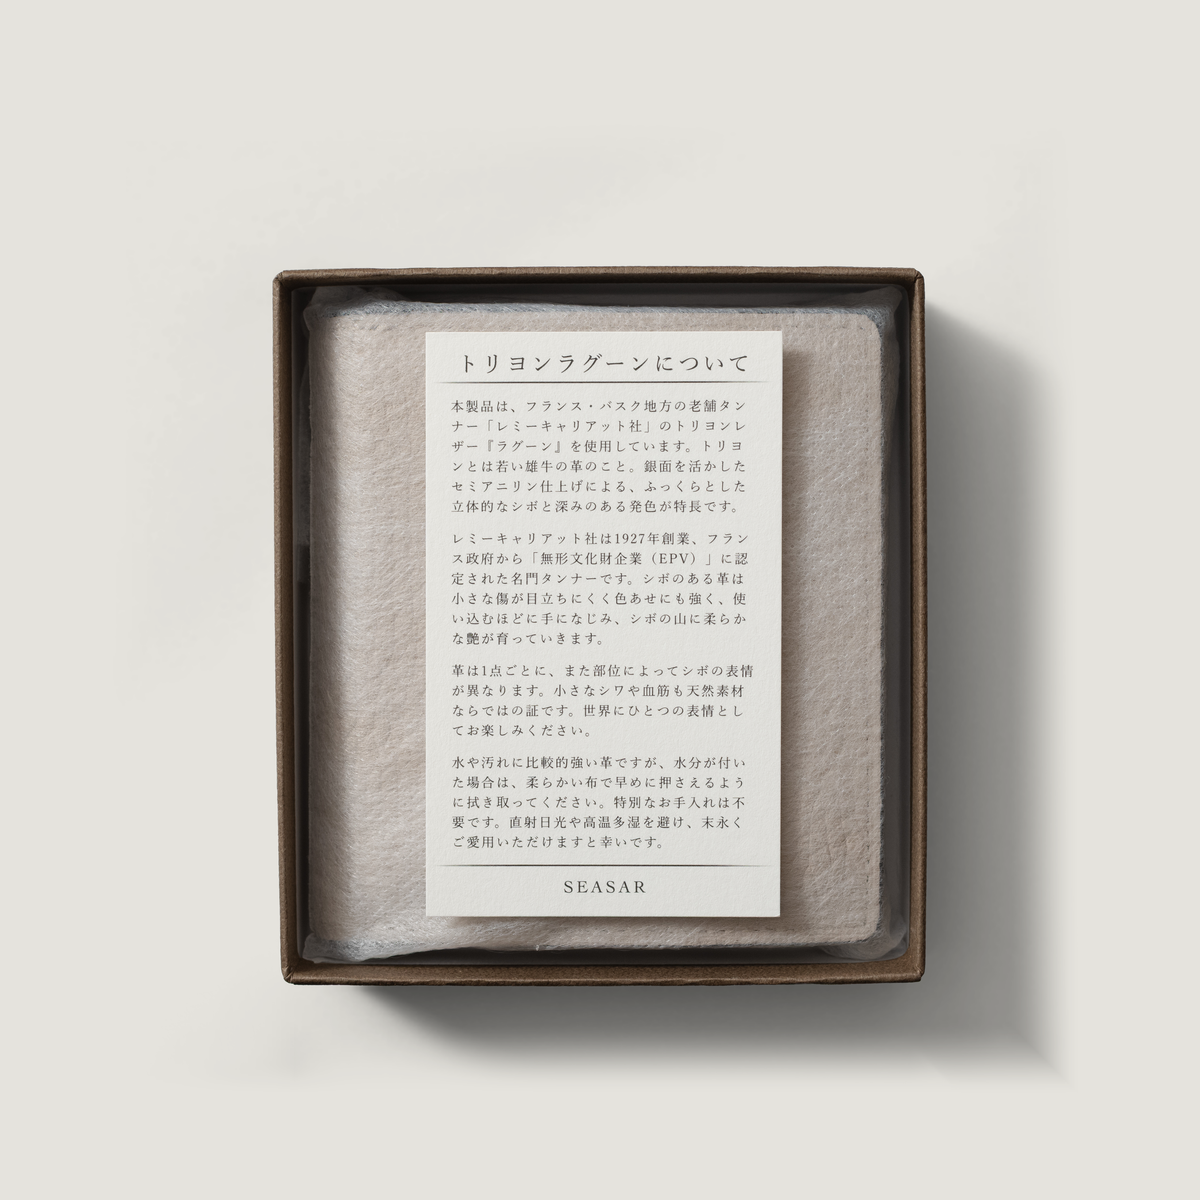 トリヨンラグーンについて
本製品は、フランス・バスク地方の老舗タン
ナー「レミーキャリアット社」のトリヨンレ
ザー『ラグーン』を使用しています。トリヨ
ンとは若い雄牛の革のこと。銀面を活かした
セミアニリン仕上げによる、ふっくらとした
立体的なシボと深みのある発色が特長です。
レミーキャリアット社は1927年創業、フラン
ス政府から「無形文化財企業（EPV）」に認
定された名門タンナーです。シボのある革は
小さな傷が目立ちにくく色あせにも強く、使
い込むほどに手になじみ、シボの山に柔らか
な艶が育っていきます。
革は1点ごとに、また部位によってシボの表情
が異なります。小さなシワや血筋も天然素材
ならではの証です。世界にひとつの表情とし
てお楽しみください。
水や汚れに比較的強い革ですが、水分が付い
た場合は、柔らかい布で早めに押さえるよう
に拭き取ってください。特別なお手入れは不
要です。直射日光や高温多湿を避け、末永く
ご愛用いただけますと幸いです。
SEASAR